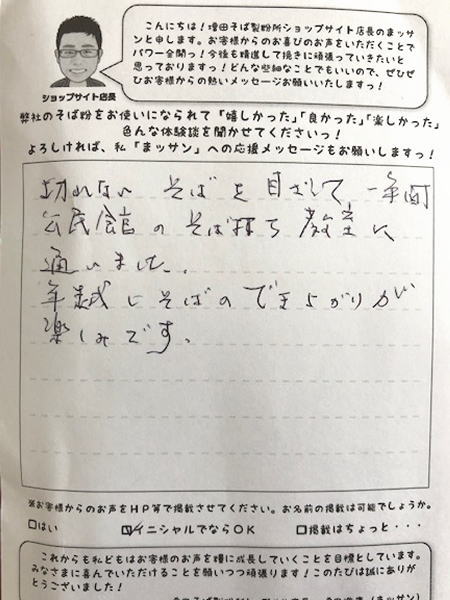 こんにちは！増田そば製粉所ショップサイト店長のまッサ
ンと申します。お客様からのお喜びのお声をいただくことで
パワー全開っ！今後も精進して挽きに頑張っていきたいと
思っておりますっ！どんな些細なことでもいいので、ぜひぜ
ひお客様からの熱いメッセージお願いいたしますっ！
ショップサイト店長
弊社のそば粉をお使いになられて「嬉しかった」「良かった」「楽しかった」
色んな体験談を聞かせてくださいっ！
よろしければ、私「まッサン」への応援メッセージもお願いしますっ！
切れない そばを目ざして 一年間
公民館のそば打ち教室に
通いました。
年越しそばのできあがりが
楽しみです。
※お客様からのお声をHP等で掲載させてください。お名前の掲載は可能でしょうか。
□はい ☑イニシャルでならOK □掲載はちょっと・・・
これからも私どもはお客様のお声を糧に成長していくことを目標としています。
みなさまに喜んでいただけることを願いつつ頑張ります！このたびは誠にありが
とうございました！